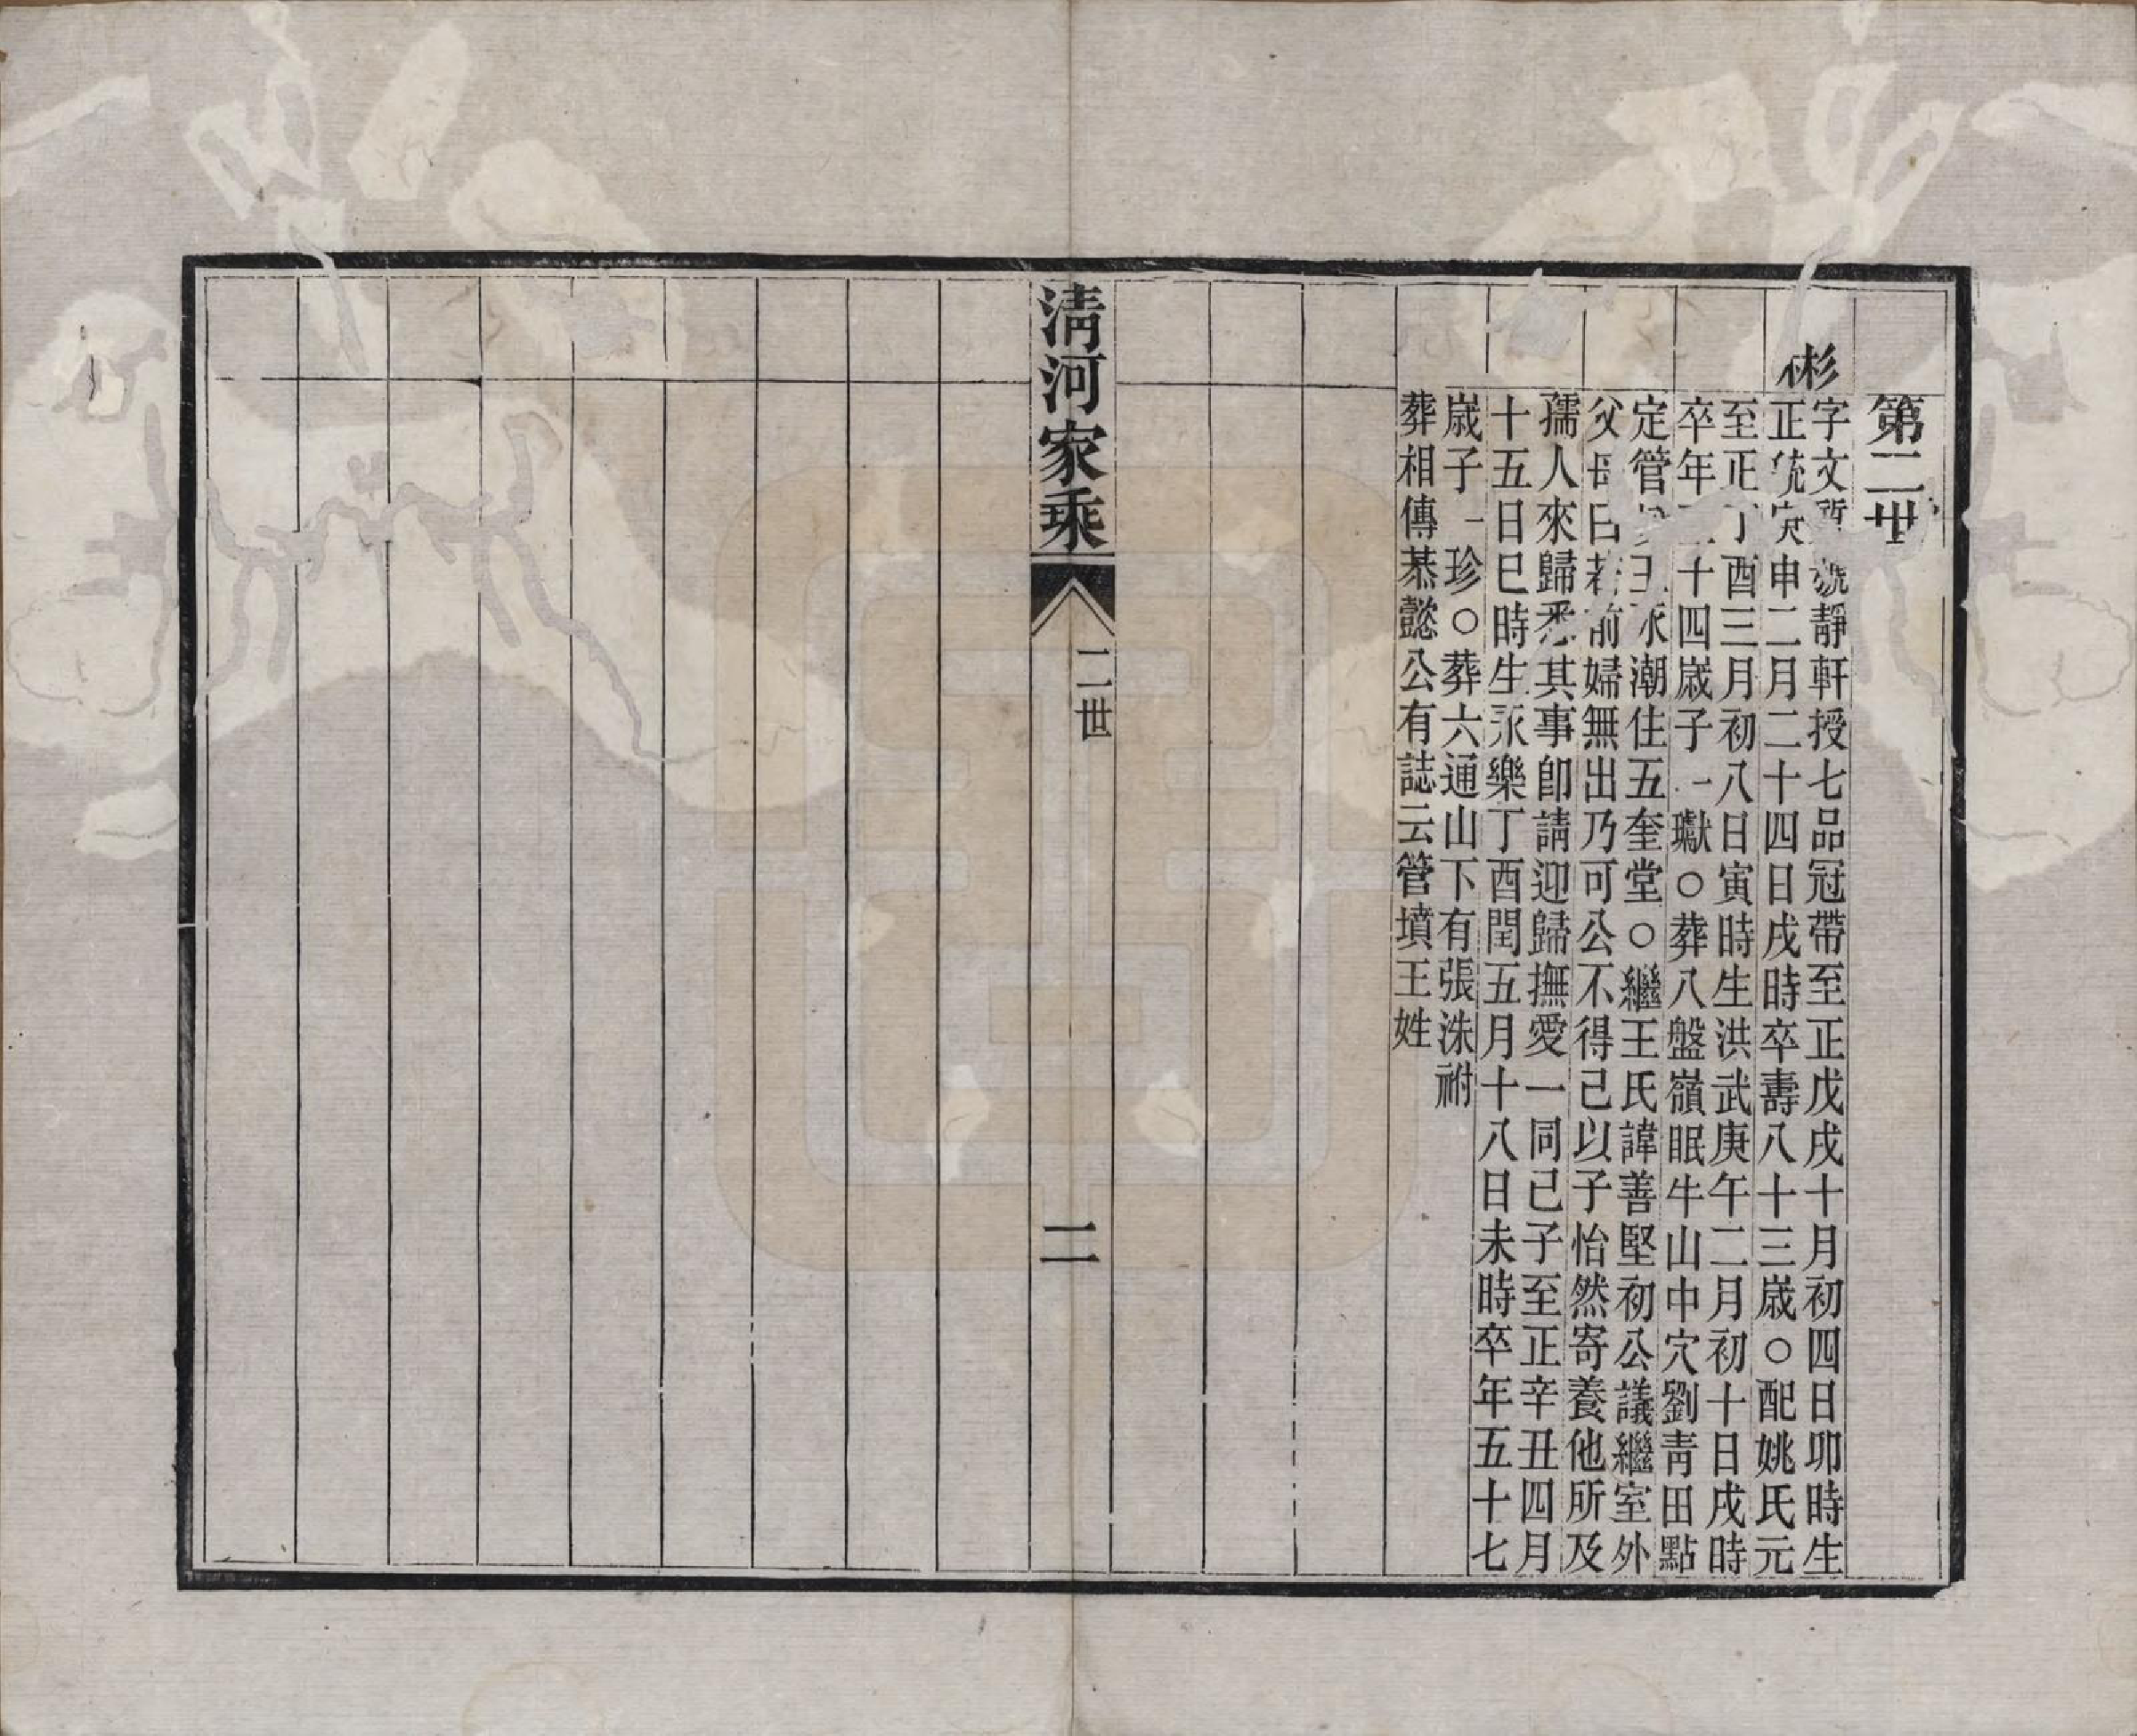 第二世
彬
字文 號靜軒授七品冠帶至正戊戌十月初四日卯時生
正統 申二月二十四日戌時卒壽八十三歲○配姚氏元
至正丁酉三月初八日寅時生洪武庚午二月初十日戌時
卒年 十四歲子一瓛○葬八盤嶺眠牛山中穴劉靑田點
定管 王永潮住五奎堂○繼王氏諱善堅初公議繼室外
父母曰若前婦無出乃可公不得已以子怡然寄養他所及
孺人來歸悉其事卽請迎歸撫愛一同己子至正辛丑四月
十五日巳時生永樂丁酉閏五月十八日未時卒年五十七
歲子一珍○葬六通山下有張洙祔
葬相傳恭懿公有誌云管墳王姓
清河家乘
二世
二